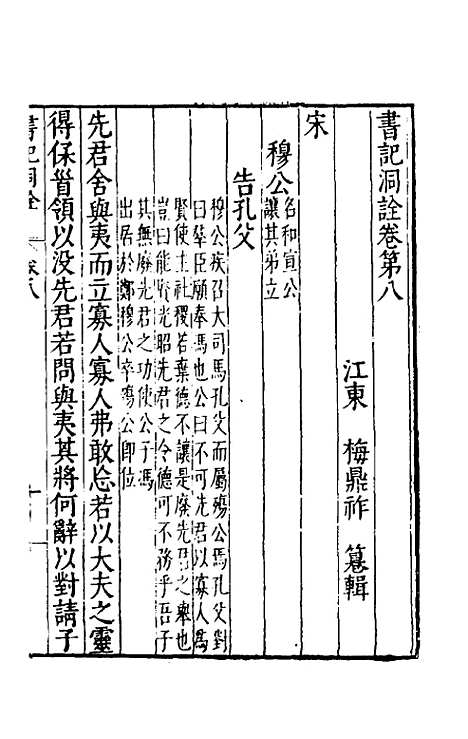 書記洞詮卷第八
江東 梅鼎祚 篹輯
宋
穆公 名和宣公
讓其弟立
告孔父
穆公疾召大司馬孔父而屬殤公焉孔父對
曰羣臣願奉馮也公曰不可先君以寡人爲
賢使主社稷若棄德不讓是廢先君之舉也
豈曰能賢光昭先君之令德可不務乎吾子
其無廢先君之功使公子馮
出居於鄭穆公卒殤公卽位
先君舍與夷而立寡人寡人弗敢忘若以大夫之靈
得保首領以没先君若問與夷其將何辭以對請子
書記洞詮 卷八